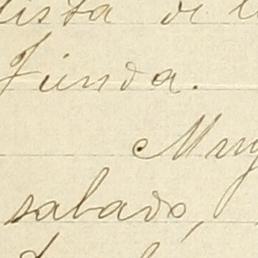 lista de l
Tienda.
Muy
sabado,